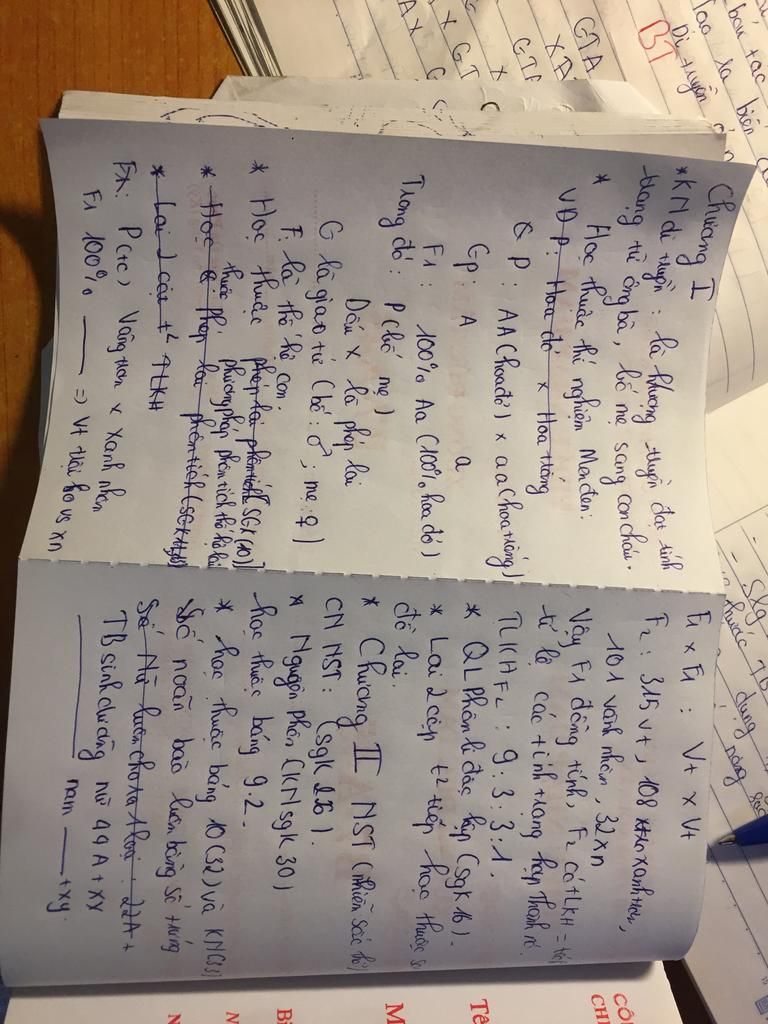 Chương I
*KN di truyền : là h tượng truyền đạt tính
trạng từ ông bà, bố mẹ sang con cháu.
* Học thuộc thí nghiệm Menđen:
VD P: Hoa đỏ x Hoa trắng
P : AA (hoa đỏ) x aa (hoa trắng)
Gp : A a
F1 : 100% Aa (100% hoa đỏ)
Trong đó : P (bố mẹ)
Dấu x là phép lai
G là giao tử (bố : ♂ ; mẹ : ♀)
F là thế hệ con.
* Học thuộc phép lai phân tích SGK (10)
phương pháp phân tích thế hệ lai
* Học thuộc phép lai phân tích (SGK
* Lai 2 cặp t² TLKH
P(t/c) Vàng trơn x Xanh nhăn
F1 100% ___ => vt trội ho vs xn
F1 x F1 : Vt x Vt
F2 : 315 vt, 108 xanh trơn,
101 vành nhăn, 32 xn
Vậy F1 đồng tính, F2 có tLKH = tích
tỉ lệ các tính trạng hợp thành nó.
TLKH F2 : 9 : 3 : 3 : 1.
* QL phân li độc lập (sgk 16).
* Lai 2 cặp t² tiếp học thuộc sơ
đồ lai.
* Chương II NST (nhiễm sắc thể)
CN NST : (sgk 26).
* Nguyên phân (KN sgk 30)
học thuộc bảng 9.2.
* học thuộc bảng 10 (32) và KN (33)
Số noãn bào luôn bằng số trứng
Số Nữ luôn cho ra 1 loại : 22A +
TB sinh dưỡng nữ 44A + XX
___ nam ___ + xy.
BT
Di truyền
GTA
XA
GT
AX
biến
dụng
CÔ
CH
Tê
M
Bi
N
N